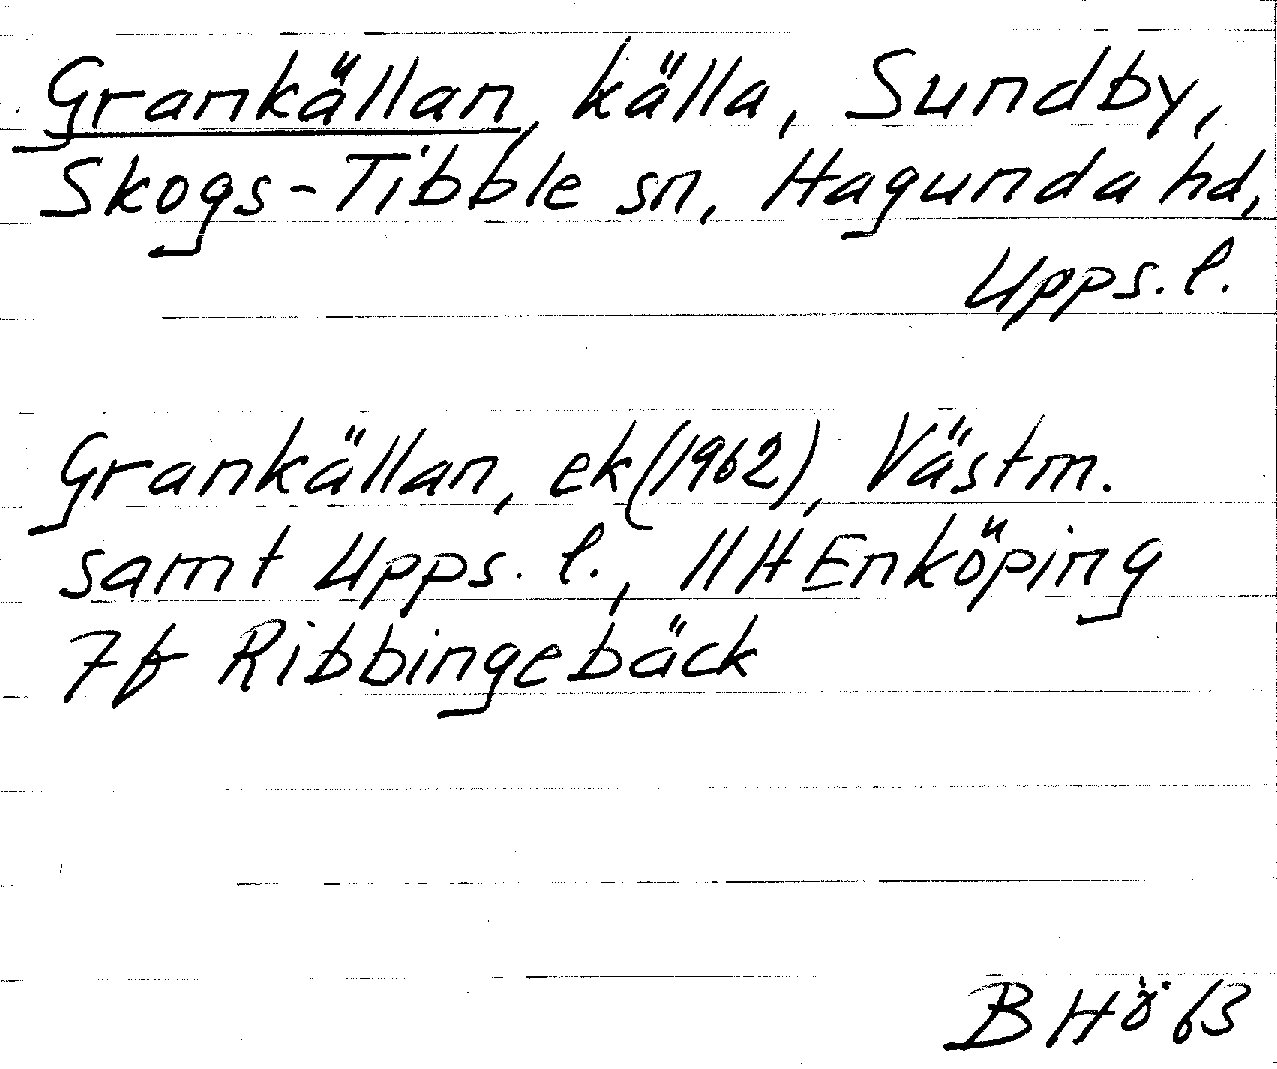 Grankällan, källa, Sundby,
Skogs-Tibble sn, Hagunda hd,
Upps. l.
Grankällan, ek (1962), Västm.
samt Upps. l., 11H Enköping
7f Ribbingebäck
B Hö 63